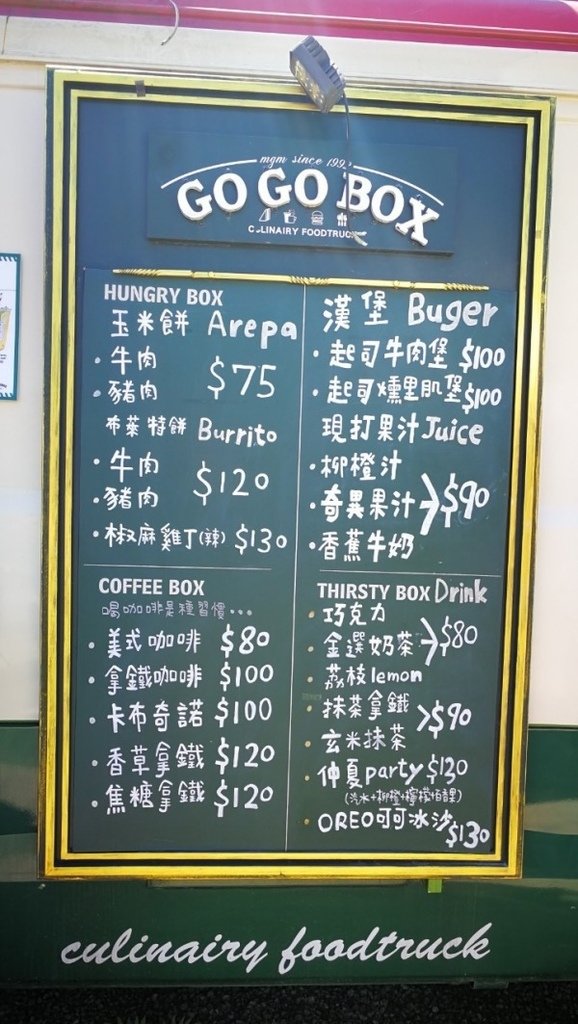 GO GO BOX
HUNGRY BOX
玉米餅 Arepa
・牛肉
・豬肉
$75
布萊特餅 Burrito
・牛肉
・豬肉
$120
・椒麻雞丁(辣) $130
漢堡 Buger
・起司牛肉堡 $100
・起司燻里肌堡 $100
現打果汁 Juice
・柳橙汁
・奇異果汁 $90
・香蕉牛奶
COFFEE BOX
喝咖啡是種習慣...
・美式咖啡 $80
・拿鐵咖啡 $100
・卡布奇諾 $100
・香草拿鐵 $120
・焦糖拿鐵 $120
THIRSTY BOX Drink
・巧克力
・金選奶茶 $80
・荔枝lemon
・抹茶拿鐵 $90
・玄米抹茶
・仲夏party $130
(汽水+柳橙+檸檬+百香果)
OREO可可冰沙 $130
culinairy foodtruck